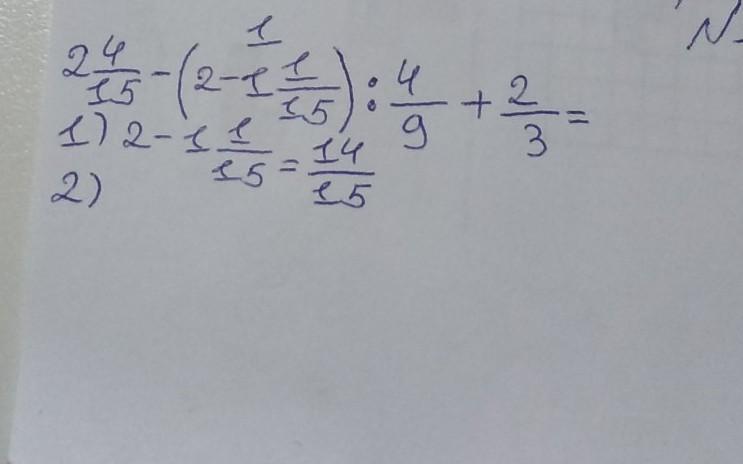 N
1
2 4/15 - (2 - 1 1/15) : 4/9 + 2/3 =
1) 2 - 1 1/15 = 14/15
2)